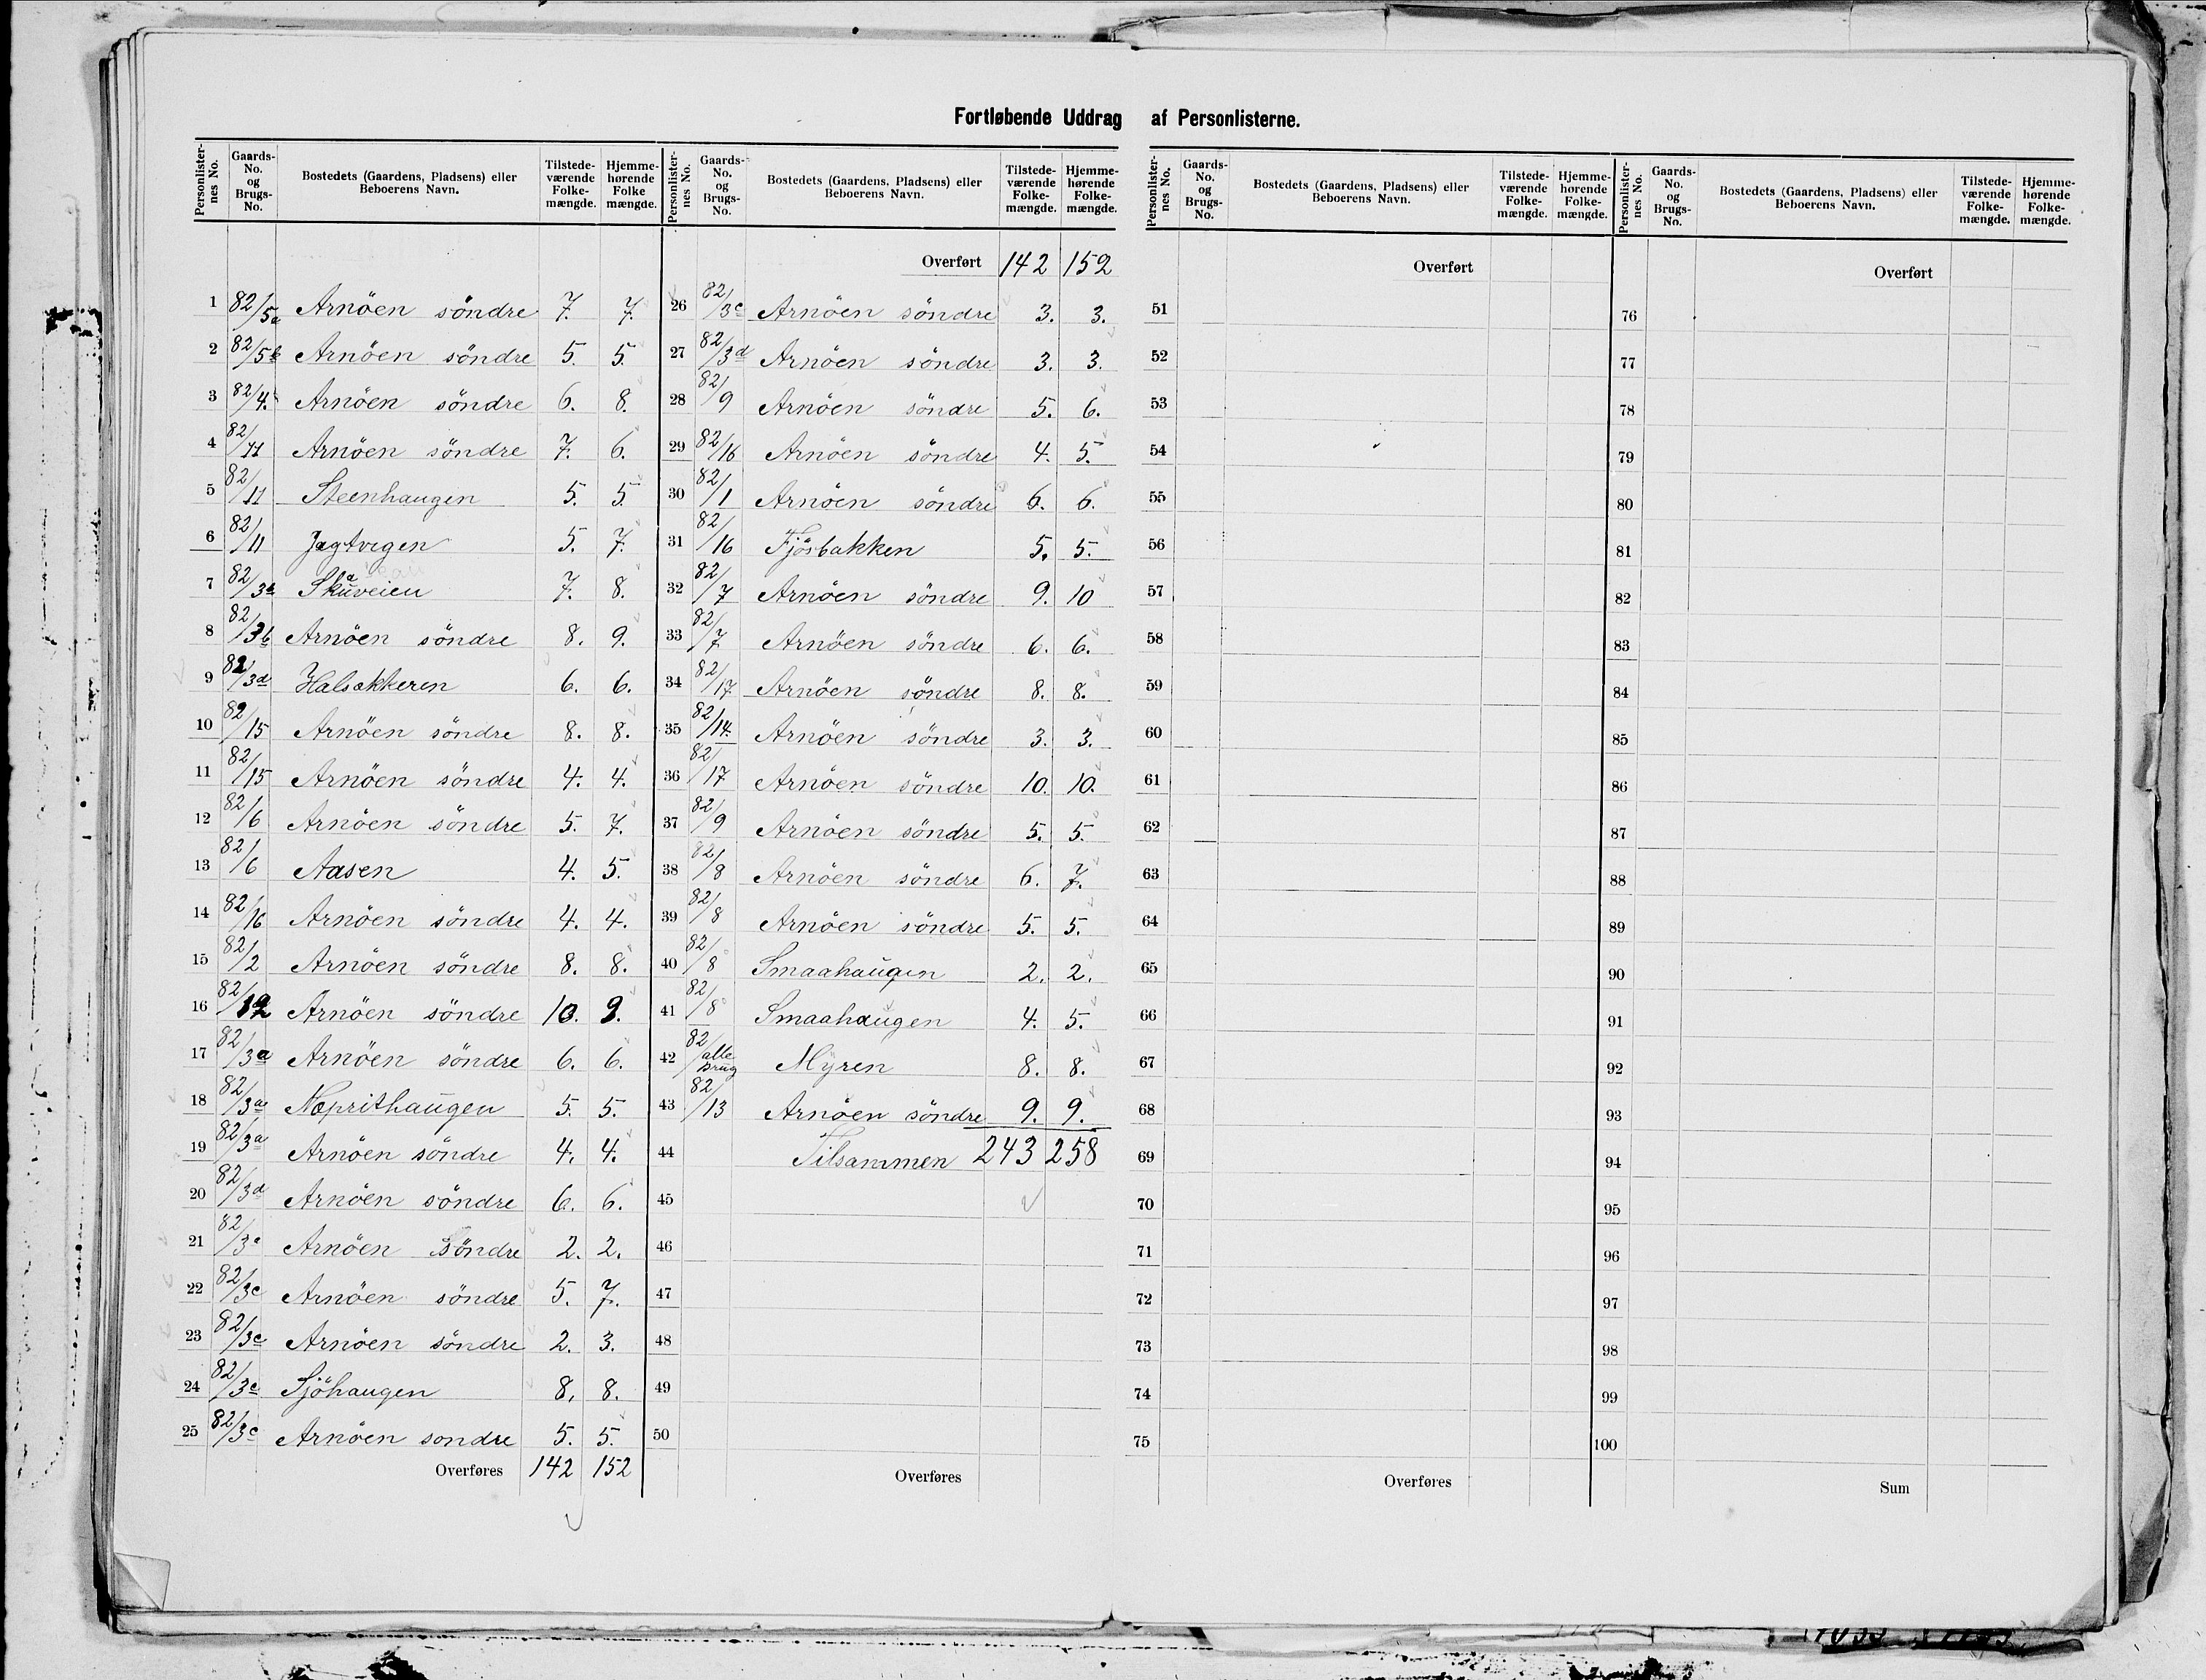 Fortløbende Uddrag af Personlisterne.
Personlister-nes No. Gaards-No. og Brugs-No. Bostedets (Gaardens, Pladsens) eller Beboerens Navn. Tilstede-værende Folke-mængde. Hjemme-hørende Folke mængde.
1 82/5a Arnöen söndre 7. 7.
2 82/5b Arnöen söndre 5. 5.
3 82/4. Arnöen söndre 6. 8.
4 82/11 Arnöen söndre 7. 6.
5 82/11 Steenhaugen 5. 5.
6 82/11 Jagtvigen 5. 7.
7 82/3a Skuveien 7. 8.
8 82/3b Arnöen söndre 8. 9.
9 82/3d Halsakkeren 6. 6.
10 82/15 Arnöen söndre 8. 8.
11 82/15 Arnöen söndre 4. 4.
12 82/6 Arnöen söndre 5. 7.
13 82/6 Aasen 4. 5.
14 82/16 Arnöen söndre 4. 4.
15 82/2 Arnöen söndre 8. 8.
16 82/12 Arnöen söndre 10. 9.
17 82/3a Arnöen söndre 6. 6.
18 82/3a Næprithaugen 5. 5.
19 82/3a Arnöen söndre 4. 4.
20 82/3d Arnöen söndre 6. 6.
21 82/3c Arnöen söndre 2. 2.
22 82/3c Arnöen söndre 5. 7.
23 82/3c Arnöen söndre 2. 3.
24 82/3c Sjöhaugen 8. 8.
25 82/3c Arnöen sondre 5. 5.
Overføres 142 152
Personlister-nes No. Gaards-No. og Brugs-No. Bostedets (Gaardens, Pladsens) eller Beboerens Navn. Tilstede-værende Folke-mængde. Hjemme-hørende Folke-mængde.
Overført 142 152
26 82/3c Arnöen söndre 3. 3.
27 82/3d Arnöen söndre 3. 3.
28 82/9 Arnöen söndre 5. 6.
29 82/16 Arnöen söndre 4. 5.
30 82/1 Arnöen söndre 6. 6.
31 82/16 Fjösbakken 5. 5.
32 82/7 Arnöen söndre 9. 10
33 82/7 Arnöen söndre 6. 6.
34 82/17 Arnöen söndre 8. 8.
35 82/14. Arnöen söndre 3. 3.
36 82/17 Arnöen söndre 10. 10.
37 82/9 Arnöen söndre 5. 5.
38 82/8 Arnöen söndre 6. 7.
39 82/8 Arnöen söndre 5. 5.
40 82/8 Smaahaugen 2. 2.
41 82/8 Smaahaugen 4. 5.
42 82/alle brug Myren 8. 8.
43 82/13 Arnöen söndre 9. 9.
44 Tilsammen 243 258
45
46
47
48
49
50
Overføres
Personlister-nes No. Gaards-No. og Brugs-No. Bostedets (Gaardens, Pladsens) eller Beboerens Navn. Tilstede-værende Folke-mængde. Hjemme-hørende Folke-mængde.
Overført
51
52
53
54
55
56
57
58
59
60
61
62
63
64
65
66
67
68
69
70
71
72
73
74
75
Overføres
Personlister-nes No. Gaards-No. og Brugs-No. Bostedets (Gaardens, Pladsens) eller Beboerens Navn. Tilstede-værende Folke-mængde. Hjemme-hørende Folke-mængde.
Overført
76
77
78
79
80
81
82
83
84
85
86
87
88
89
90
91
92
93
94
95
96
97
98
99
100
Sum